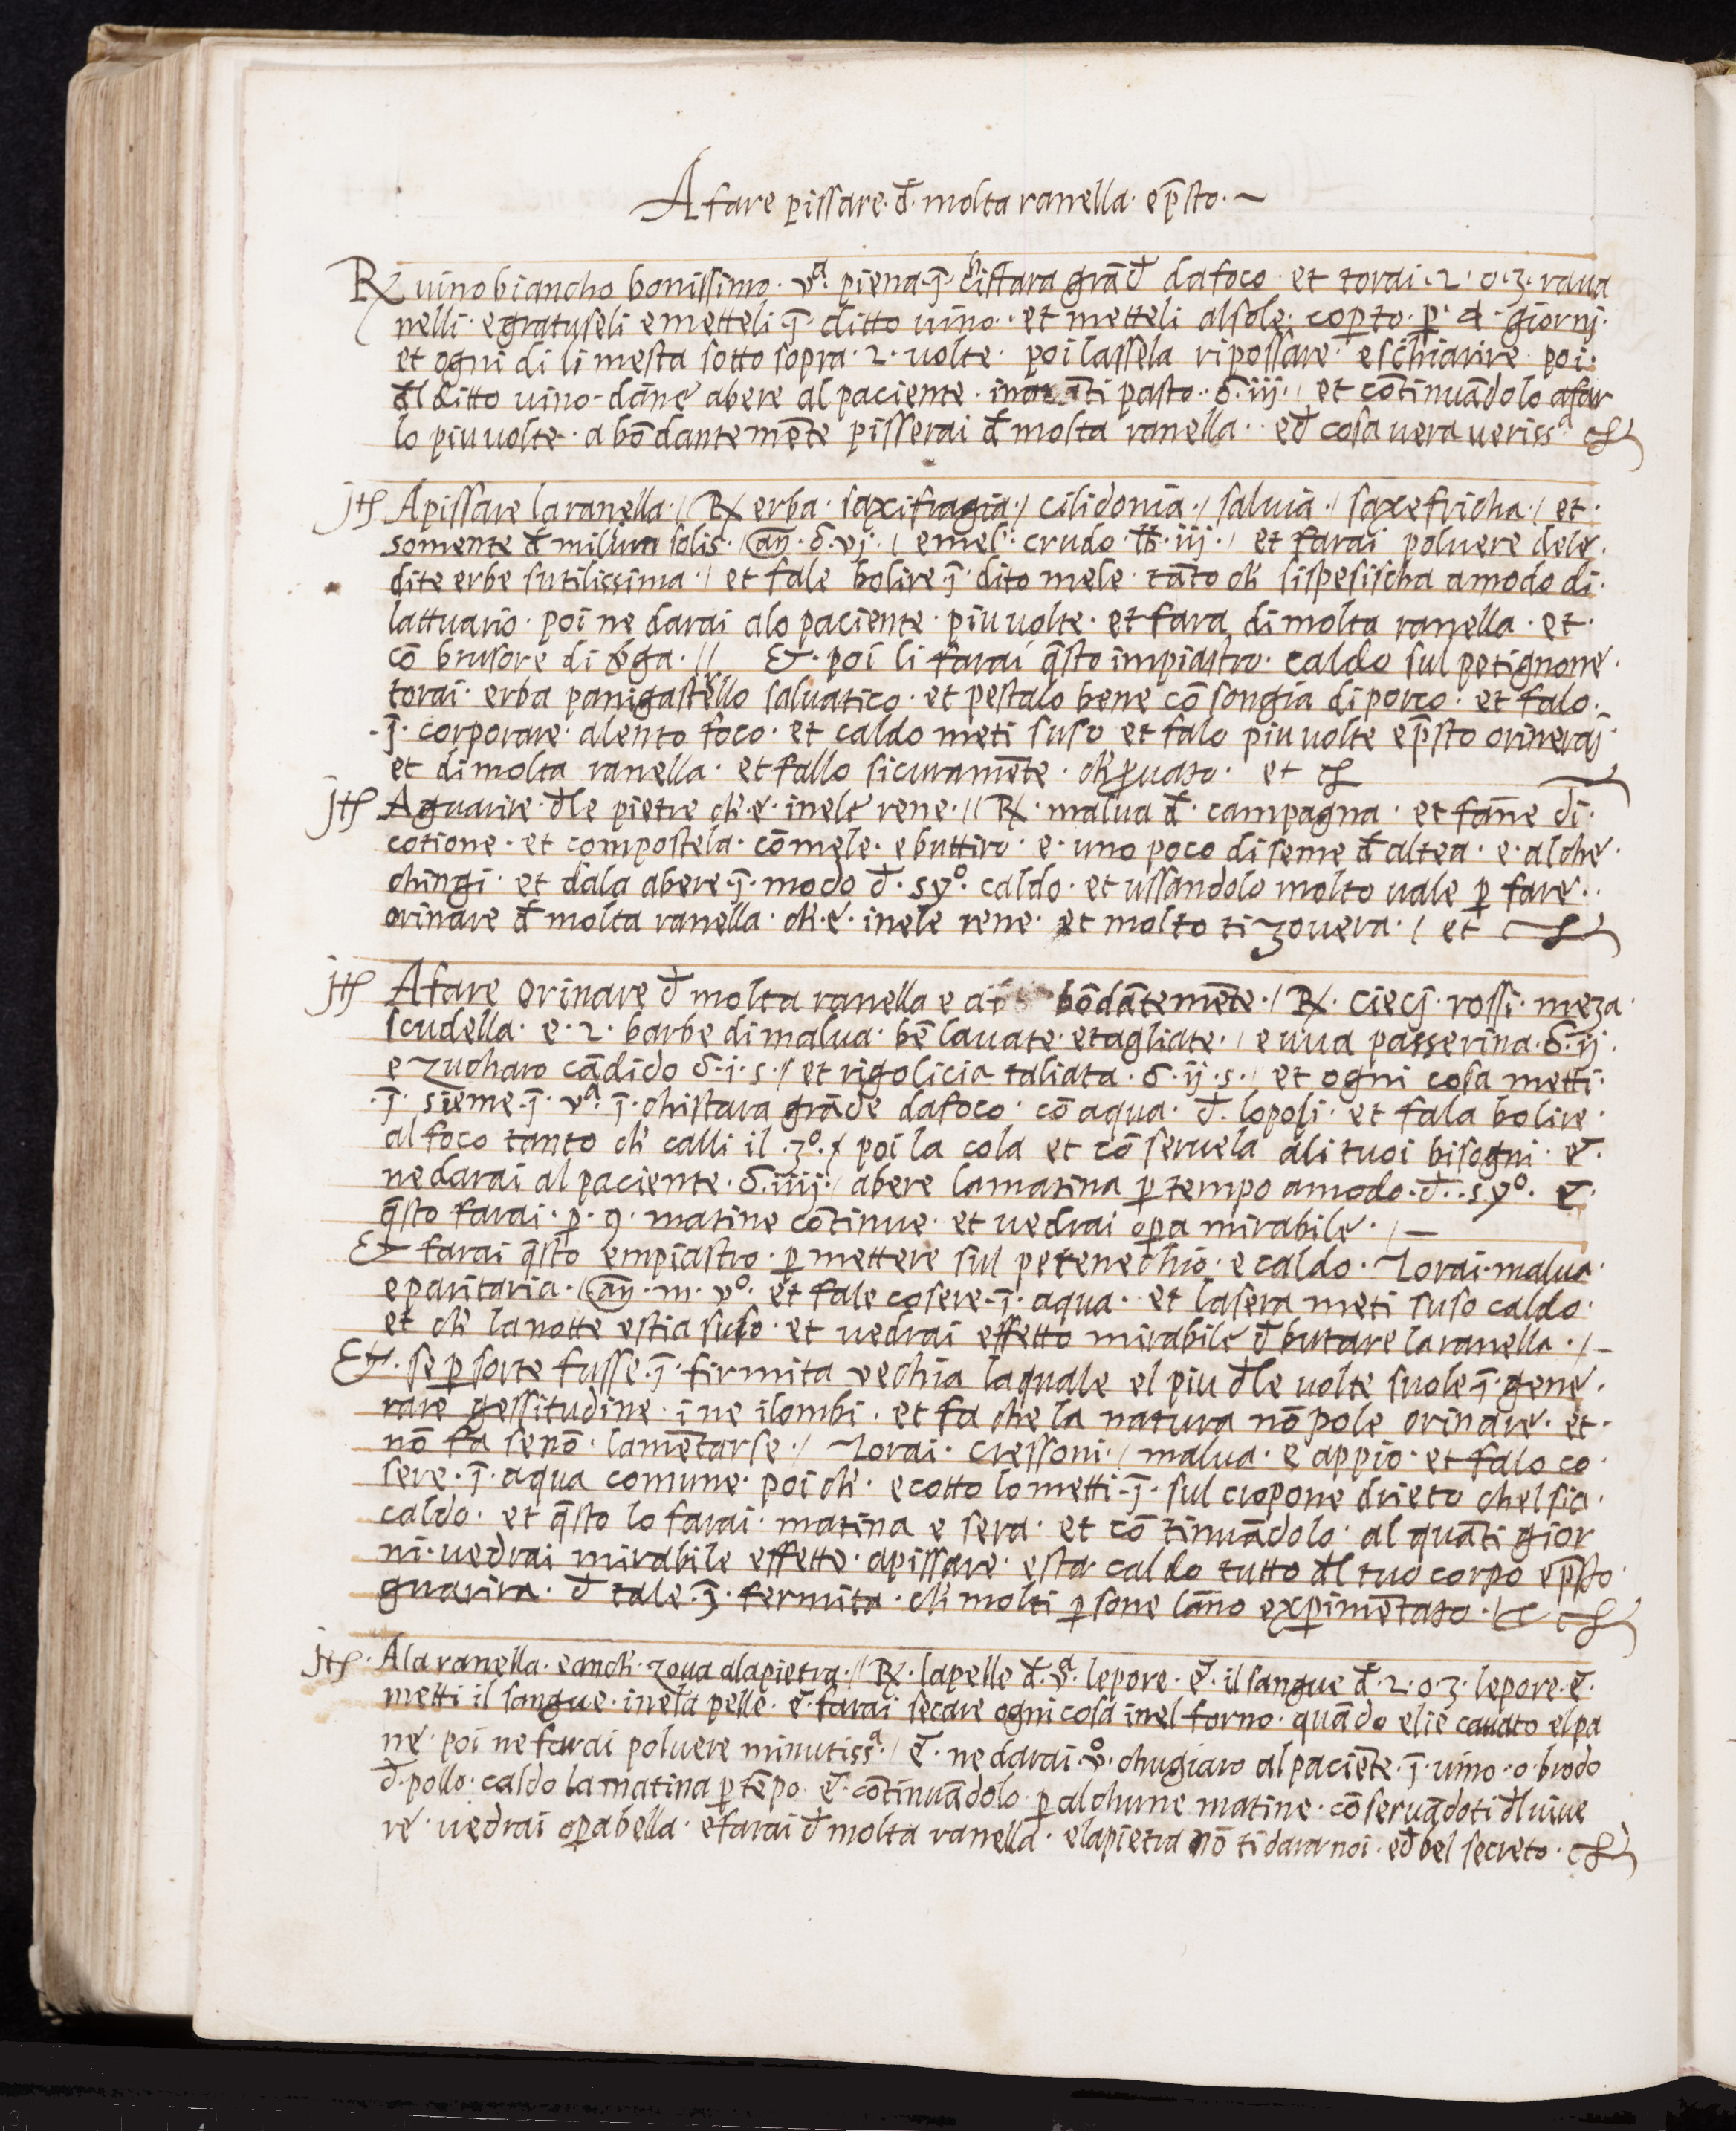 A fare pissare · đ · molta ranella · e p̄sto · ~
℞ uino biancho bonissimo · vᵃ · piena · j̄ · chistara grāđ da foco · et torai · 2 · o · 3 · raua
nelli · e gratuseli e metteli · j̄ · ditto uino · et metteli al sole · cop̱to · p̱ · 4 · giornj ·
et ogni di li mesta sotto sopra · 2 · uolte · poi lassela ripossare · e schiarire poi ·
đl ditto uino · dāne abere al paciente · ināti pasto · ℥ · iij · / et cōtinuādolo afar
lo piu uolte · abōdantemēte pisserai đ molta ranella · eđ cosa uera uerissᵃ
jtɬ A pissare la ranella · / ℞ erba · saxifragia · / cilidonia · / saluia · / saxefricha · / et ·
somente đ milium solis · / añ · ℥ · vj · / e mel · crudo · ℔ · iij · / et farai poluere dele ·
dite erbe sutilissima · / et fale bolire · j̄ · dito mele · tāto ch̄ si spesischa a modo di ·
lattuario · poi ne darai alo paciente · piu uolte · et fara di molta ranella · et ·
cō brusore di v̄ga · // & · poi li farai q̄sto impiastro · caldo sul petignone ·
torai · erba panigastrello saluatico · et pestalo bene cō songia di porco · et falo ·
· j̄ · corporare · a lento foco · et caldo meti suso et falo piu uolte e p̄sto orineraj ·
et di molta ranella · et fallo sicuramēte · ch̄ ꝓuato · et
jtɬ A guarire · đle pietre ch̄ · e · inele rene · // ℞ · malua đ · campagna · et fāne di ·
cotione · et compostela · cō mele · e buttiro · e · uno poco di seme đ altea · e · alche ·
chingi · et dala abere · j̄ · modo đ · syº · caldo · et ussandolo molto uale p̱ fare ·
orinare đ molta ranella · ch̄ · e · inele rene · et molto ti zouera · / et
jtɬ A fare orinare đ molta ranella e a bōdātemēte · / ℞ · ciecj · rossi · meza ·
scudella · e · 2 · barbe di malua · bē lauate · e tagliate · / e uua passerina · ℥ · ij ·
e zucharo cādido ℥ · i · s · / et rigolicia taliata · ℥ · ij · s · / et ogni cosa metti ·
· j̄ · sieme · j̄ · vᵃ · j̄ · chistara grāde da foco · cō aqua · đ · lopoli · et fala bolire ·
al foco tanto ch̄ calli il · 3º · / poi la cola et cō seruela ali tuoi bisogni · e ·
ne darai al paciente · ℥ · iiij · / abere la matina p̱ tempo a modo · đ · syº · e ·
q̄sto farai · p̱ · 9 · matine cōtinue · et uedrai op̱a mirabile · / —
& farai q̄sto empiastro · p̱ mettere sul petenechio · e caldo · Torai · malua ·
e paritaria · / añ · m · vº · et fale cosere · j̄ · aqua · et la sera meti suso caldo ·
et ch̄ la notte e stia suso · et uedrai effetto mirabile đ butare la ranella · / —
& · se p̱ sorte fusse · j̄ · firmita vechia la quale el piu đle uolte suole · j̄ · gene ·
rare gessitudine · ine i lombi · et fa che la natura nō pole orinare · et ·
nō fa se nō · lamētarse · / Torai · cressoni · / malua · e appio · et falo co ·
sere · j̄ · aqua comune · poi ch̄ · e cotto lo metti · j̄ · sul cropone drieto chel sia ·
caldo · et q̄sto lo farai · matina e sera · et cō tinuādolo · al quāti gior
ni · uedrai mirabile effetto · a pissare · e sta caldo tutto đl tuo corpo e p̄sto ·
guarira · đ tale · j̄ · fermita · ch̄ molti p̱sone lāno exp̱imētato · /
jtɬ · A la ranella · e anch̄ · zoua ala pietra · // ℞ · la pelle đ · vᵃ · lepore · e · il sangue đ · 2 · o · 3 · lepore · e ·
metti il sangue · inela pelle · e · farai secare ogni cosa inel forno · quādo elie cauato el pa
ne · poi ne farai poluere minutissᵃ · / e · ne darai · vº · chugiaro al paciēte · j̄ · uino · o · brodo
đ · pollo · caldo la matina p̱ tēpo · e · cōtinuādolo · p̱ alchune matine · cōseruādoti đl uiue
re · uedrai op̱a bella · e farai đ molta ranella · e la pietra nō ti dara noi · eđ bel secreto ·